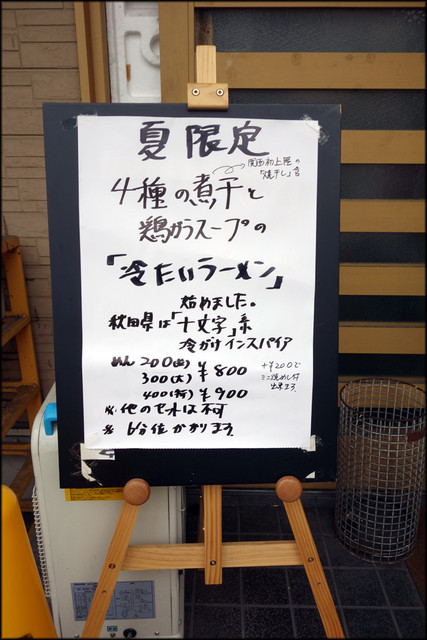 夏限定
関西初上陸の
「焼干し」含
4種の煮干と
鶏ガラスープの
「冷たいラーメン」
始めました。
秋田県は「十文字」系
冷がけインスパイア
めん 200(並) ¥800
300(大)
400(特) ¥900
+¥200で
ミニ焼めし付
出来ます。
※他のセットは不可
※ 6分位かかります。